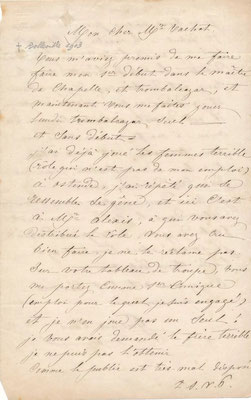 Mon cher Mr Vachot
+ Bolleville 1903
Vous m'aviez promis de me faire
faire mon 1er début dans le maître
de Chapelle, et trombalcazar, et
maintenant vous me faites jouer
lundi trombalcazar seul
et sans début
J'ai déjà joué les femmes terrible
(rôle qui n'est pas de mon emploi)
à ostende, j'ai répété que de
et ici c'est
à Mr Alexis, à que vous avez
distribué le rôle. Vous avez cru
bien faire, je ne le retame pas
sur votre tableau de troupe, vous
me portez comme 1er Comique
(emploi pour lequel je suis engagé)
et je n'en joue pas un seul!
je vous avais demandé le frère terrible
je ne puis pas l'obtenir
Comme le public est très mal disposé
T.S.V.P.